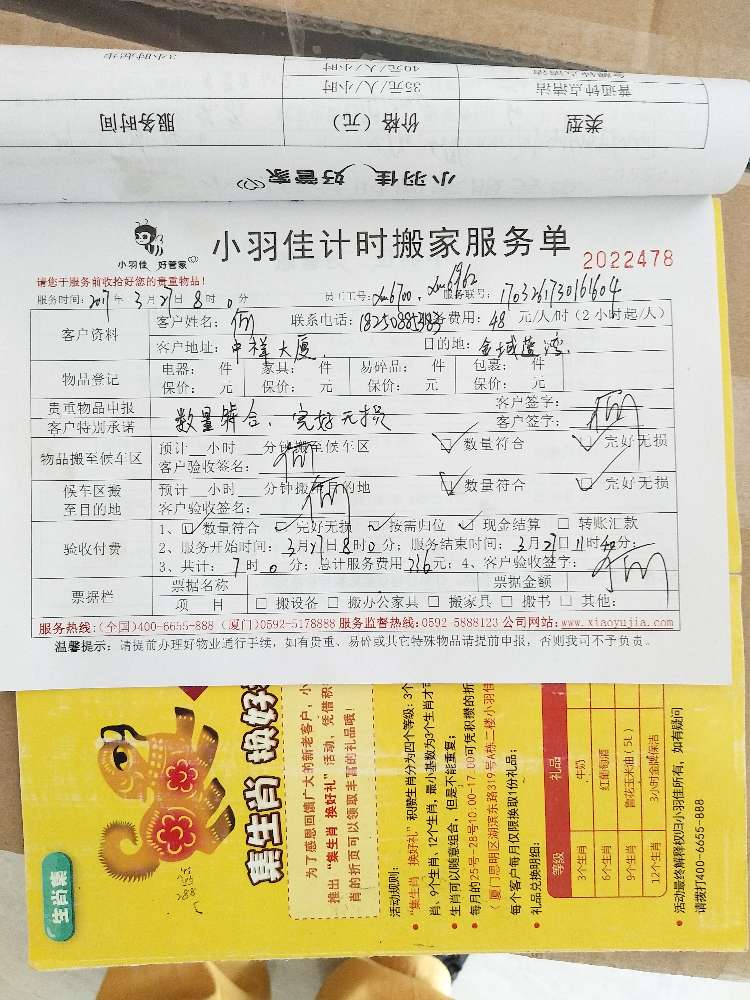 3小时起步
40元/人/小时
普通钟点清洁 35元/人/小时
类型 价格（元） 服务时间
小羽佳 好管家
小羽佳 好管家
小羽佳计时搬家服务单
2022478
请您于服务前收拾好您的贵重物品！
服务时间：2017年3月27日8时0分 员工工号： 服务联号：1703261730161604
客户资料
客户姓名：何 联系电话：18250885383 服务费用：48 元/人/时（2小时起/人）
客户地址：中祥大厦 目的地：金域蓝湾
物品登记
电器： 件 家具： 件 易碎品： 件 包裹： 件
保价： 元 保价： 元 保价： 元 保价： 元
贵重物品申报 客户签字：
客户特别承诺 数量符合、完好无损 客户签字：
物品搬至候车区
预计__小时__分钟搬至候车区 数量符合 完好无损
客户验收签名：
候车区搬至目的地
预计__小时__分钟搬至目的地 数量符合 完好无损
客户验收签名：
验收付费
1、数量符合 完好无损 按需归位 现金结算 □ 转账汇款
2、服务开始时间：3月27日8时0分；服务结束时间：3月27日11时40分；
3、共计：7时0分；总计服务费用336元；4、客户验收签字：
票据栏
票据名称 票据金额
项 目 □ 搬设备 □ 搬办公家具 □ 搬家具 □ 搬书 □ 其他：
服务热线：(全国)400-6655-888 (厦门)0592-5178888 服务监督热线：0592-5888123 公司网站：www.xiaoyujia.com
温馨提示：请提前办理好物业通行手续，如有贵重、易碎或其它特殊物品请提前申报，否则我司不予负责。
生肖集
集生肖 换好
为了感恩回馈广大的新老客户，小
推出“集生肖 换好礼”活动，凭借积
肖的折页可以领取丰富的礼品哦！
活动规则：
“集生肖 换好礼”积攒生肖分为四个等级：3个
肖、9个生肖、12个生肖，最小基数为3个生肖才
生肖可以随意组合，但是不能重复；
每月的25号-28号10:00-17:00可凭积攒的折
（厦门思明区湖滨东路319号A栋二楼小羽佳
每个客户每月仅限换取1份礼品；
礼品兑换明细：
等级 礼品
3个生肖 牛奶
6个生肖 红葡萄酒
9个生肖 鲁花玉米油（5L）
12个生肖 3小时金牌保洁
活动最终解释权归小羽佳所有，如有疑问
请拨打400-6655-888